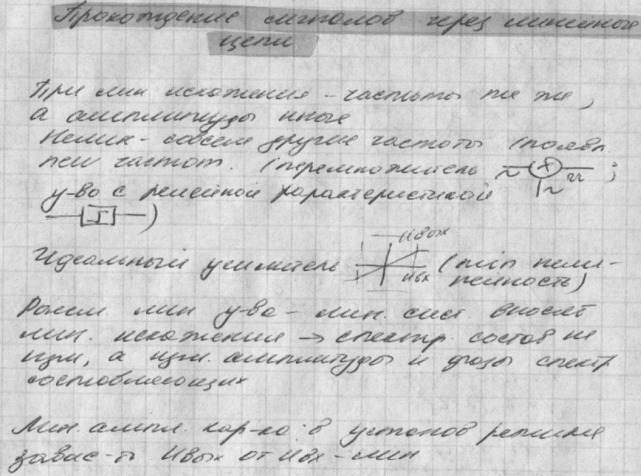 Прохождение сигналов через линейные
цепи
При лин искажения - частоты те же,
а амплитуды иные
Нелин - совсем другие частоты (появл
нен частот. (перемножитель ~ X ~ ;
у-во с релейной характеристикой
)
Идеальный усилитель Uвых Uвх (min нели-
нейность)
Рассм лин у-ва - лин. сист вносят
лин. искажения → спектр. состав не
изм, а изм. амплитуды и фазы спектр
составляющих
Лин. ампл. хар-ка: в установ режиме
завис-ть Uвых от Uвх - лин